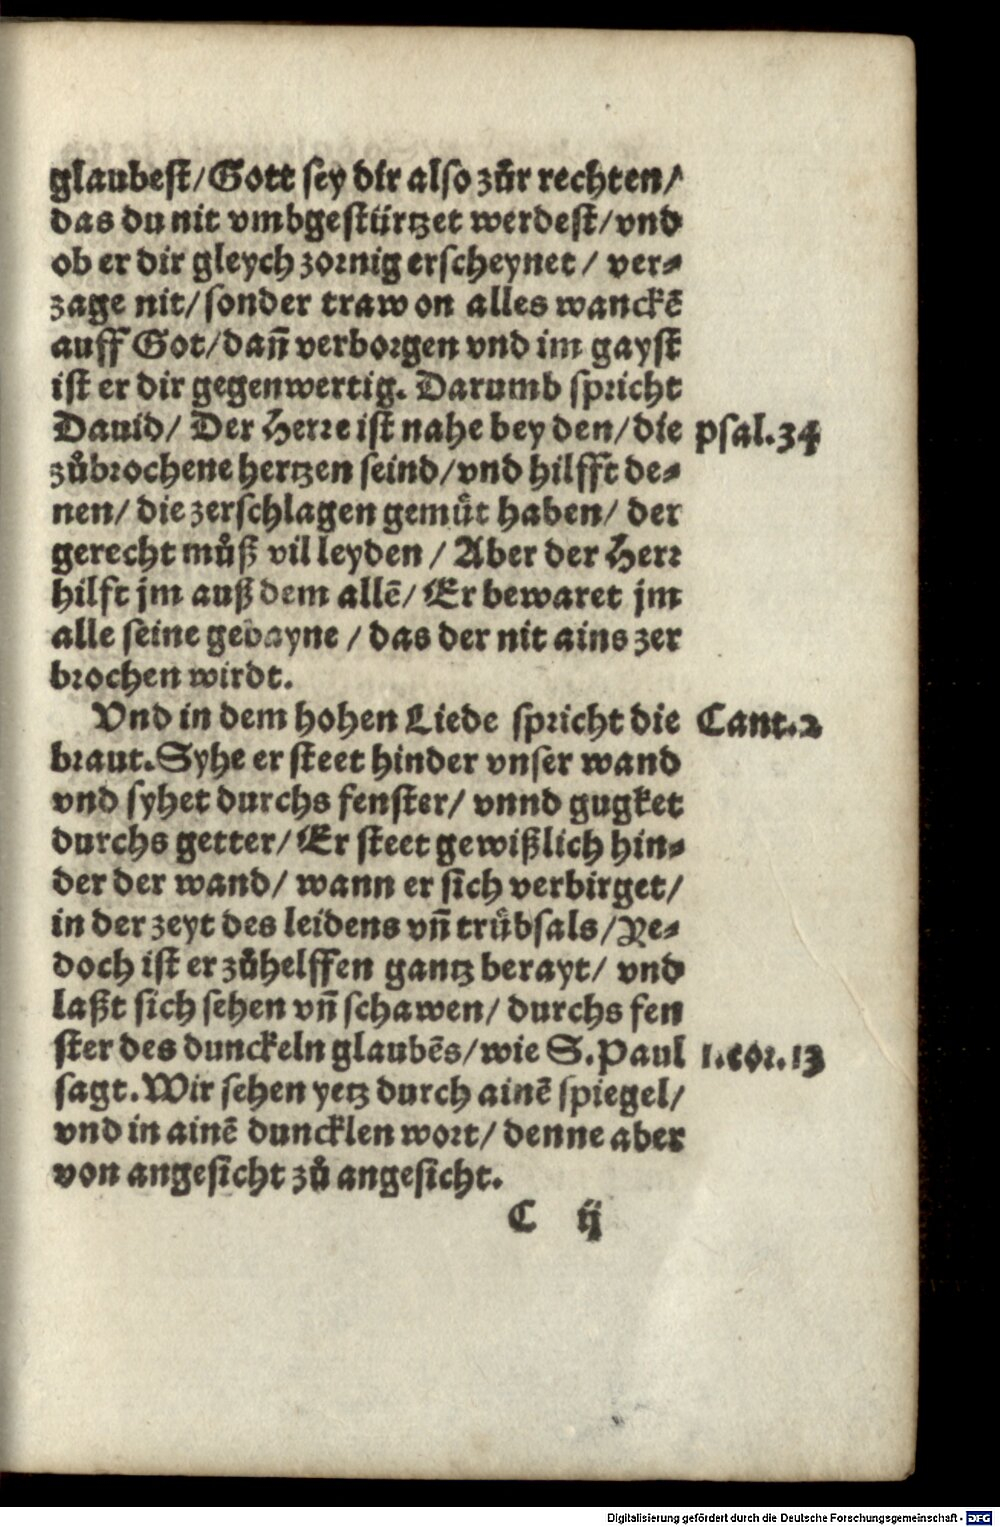 glaubest/Gott sey dir also zůr rechten/
das du nit vmbgestürtzet werdest/vnd
ob er dir gleych zornig erscheynet / ver⸗
zage nit/sonder traw on alles wanckē
auff Got/dañ verborgen vnd im gayst
ist er dir gegenwertig. Darumb spricht
Dauid/ Der Herre ist nahe bey den/die
psal.34
zůbrochene hertzen seind/vnd hilfft de⸗
nen/ die zerschlagen gemuͤt haben/ der
gerecht můß vil leyden / Aber der Herr
hilft jm auß dem allē/ Er bewaret jm
alle seine gebayne / das der nit ains zer
brochen wirdt.
Vnd in dem hohen Liede spricht die
Cant.2
braut.Syhe er steet hinder vnser wand
vnd syhet durchs fenster/ vnnd gugket
durchs getter/ Er steet gewißlich hin⸗
der der wand/ wann er sich verbirget/
in der zeyt des leidens vñ truͤbsals/Ye⸗
doch ist er zůhelffen gantz berayt/ vnd
laßt sich sehen vñ schawen/ durchs fen
ster des dunckeln glaubēs/wie S.Paul
1.cor.13
sagt.Wir sehen yetz durch ainē spiegel/
vnd in ainē duncklen wort/ denne aber
von angesicht zů angesicht.
C ij
Digitalisierung gefördert durch die Deutsche Forschungsgemeinschaft - DFG